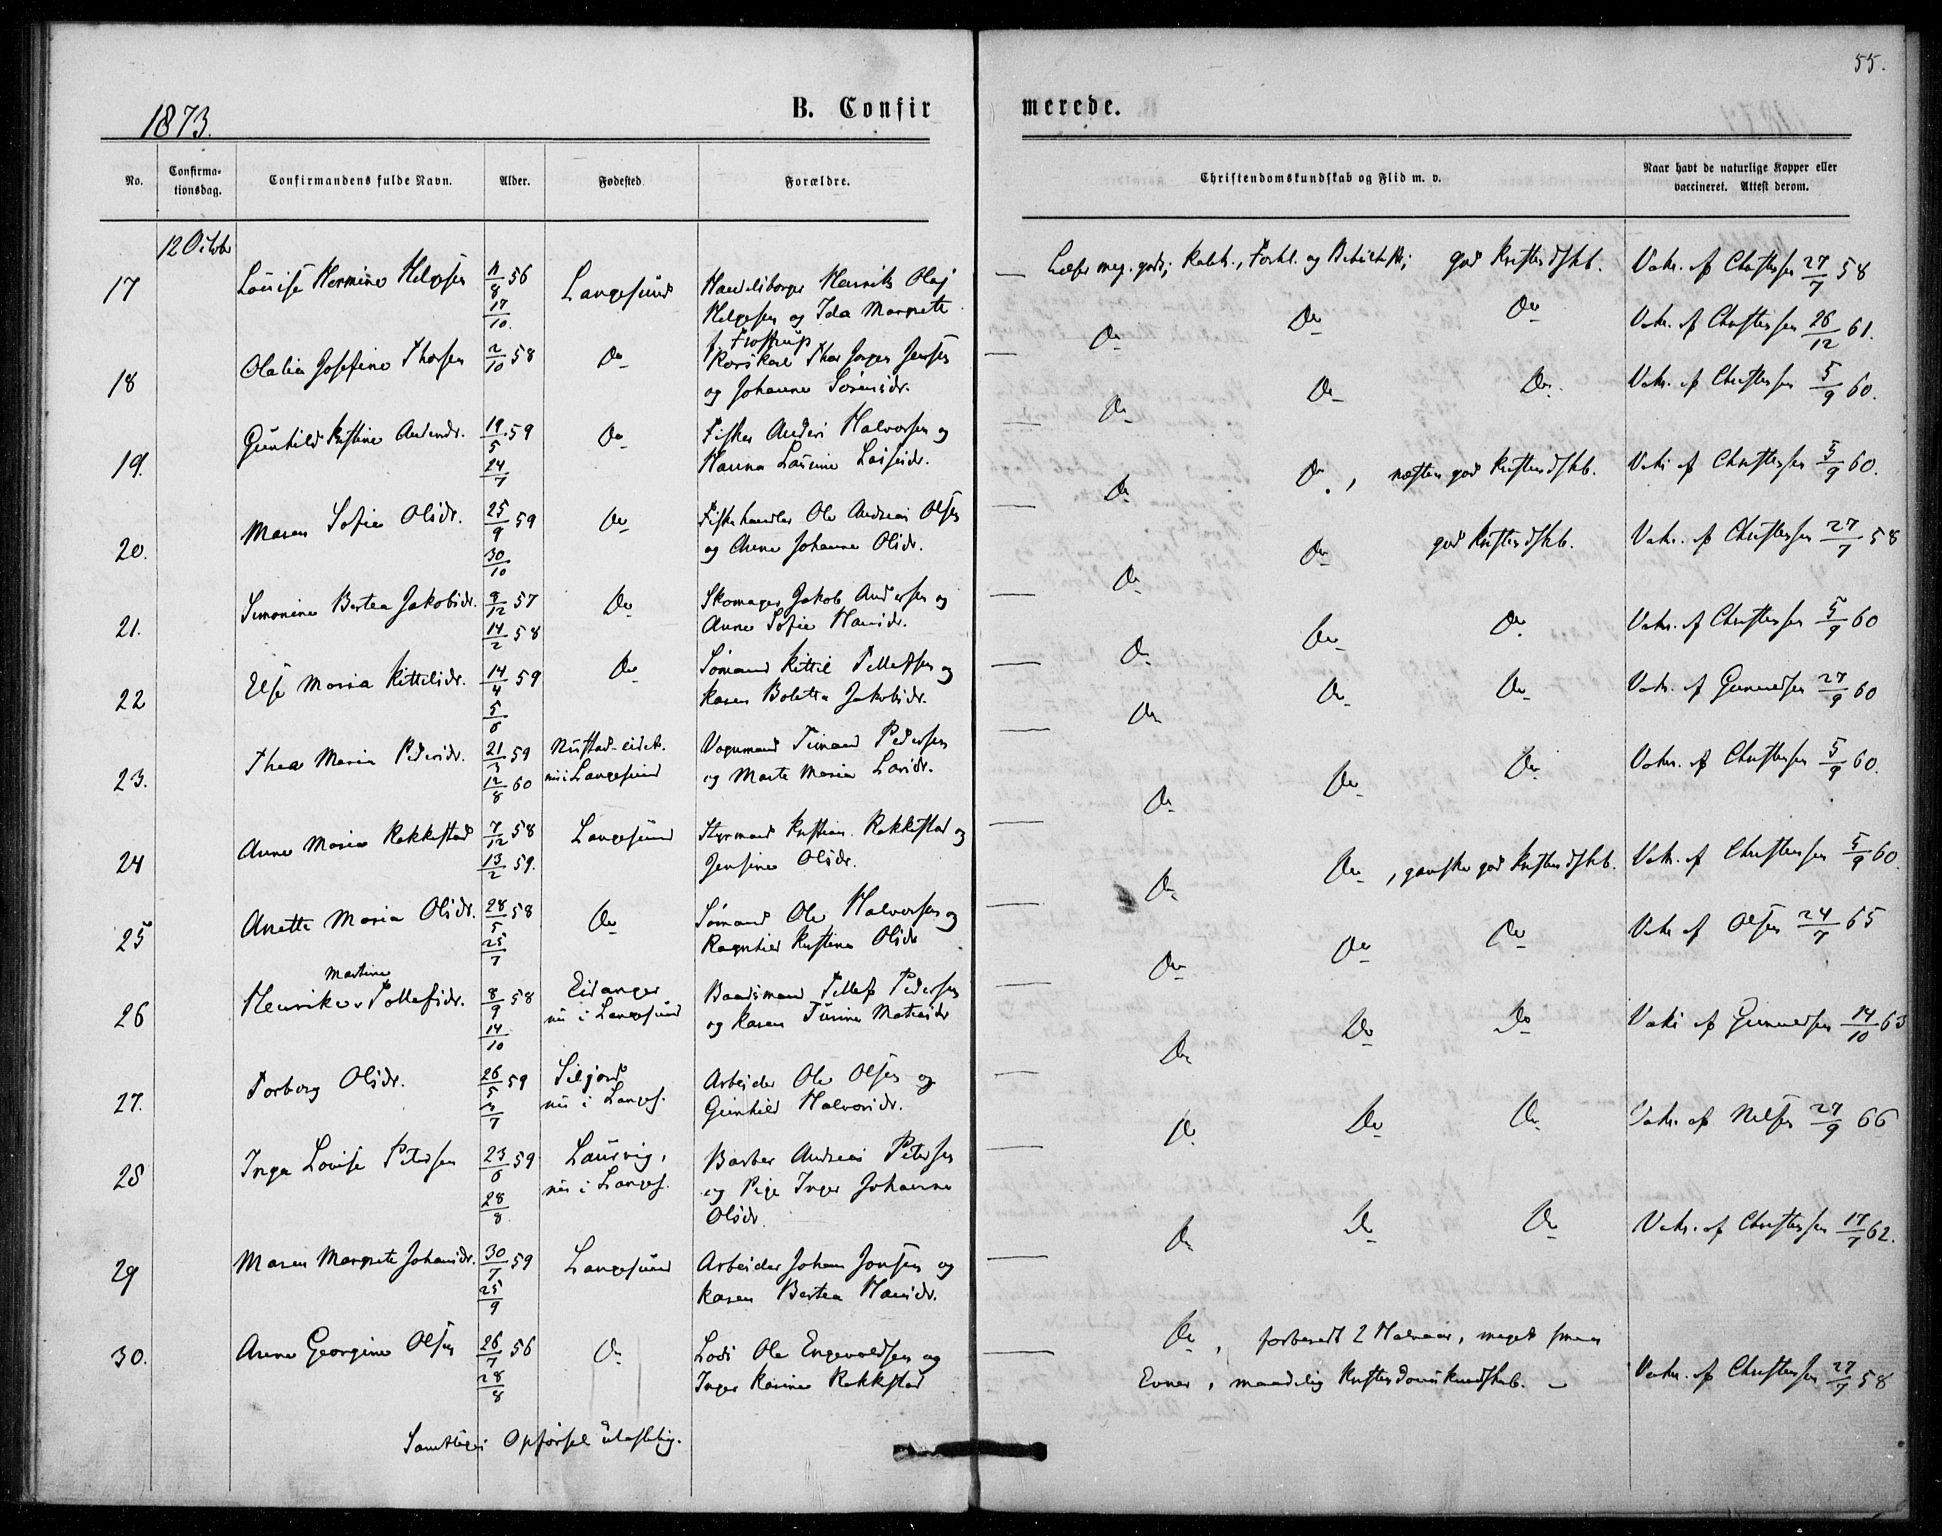 55.
1873.
B. Confir
merede.
No.
Confirma-
tionsdag.
Confirmandens fulde Navn.
Alder.
Fødested.
Forældre.
Christendomskundskab og Flid m. v.
Naar havt de naturlige Kopper eller
vaccineret. Attest derom.
12 Octobr
17 Louise Hermine Helgesen 11/8 56 Langesund Handelsborger Henrik Olaj
17/10. Helgesen og Ida Margrete
Læser meg. godt; god Kristendskb. Vakc. af Christensen 27/7 58
18 Olalia Josefine Thorsen 2/10 58 Do Thor Jensen
og Johanne Sørensdr.
Do Do Do Vakc. af Christensen 26/12 61.
19. Gunhild Kristine Andersdr. 19/5 59 Do Fisker Anders Halvorsen og
24/7 Hanna Laurine Larsdr.
Do Do Do. Vakc. af Christensen 5/9 60.
20. Maren Sofie Olsdr. 25/9 59 Do Fiskehandler Ole Andreas Olsen
30/10 og Anne Johanne Olsdr.
Do Do, næsten god Kristendskb. Vakc af Christensen 5/9 60.
21. Simonine Bertea Jakobsdr. 9/12 57 Do Skomager Jakob Andersen og
14/2 58 Anne Sofie Hansdr.
Do Do god Kristendskb. Vakc. af Christensen 27/7 58
22 Else Maria Kittilsdr. 14/4 59 Do Sømand Kittil Tellefsen og
5/6 Karen Boletta Jakobsdr.
Do Do Do Vakc. af Christensen 5/9 60
23. Thea Maria Pedersdr. 21/3 59 Nustad-eidet. Vognmand Simand Pedersen
12/8 60 nu i Langesund og Marte Maria Larsdr.
Do Do Do Vakc. af Gunnersen 27/9 60
24 Anne Maria Rakkestad 7/12 58 Langesund Styrmand Kristian Rakkestad og
13/2 59. Jensine Olsdr.
Do Do Do Vakc. af Christensen 5/9 60.
25 Anette Maria Olsdr. 28/5 58 Do Sømand Ole Halvorsen og
25/7 Ragnhild Kristine Olsdr
Do Do, ganske god Kristendskb. Vakc. af Christensen 5/9 60
Martine
26 Henrikke v Tollefsdr. 8/9 58 Eidanger Baadsmand Tellef Pedersen
14/10 nu i Langesund og Karen Turine Matiasdr
Do Do Do Vakc af Olsen 24/7 65
27. Torborg Olsdr. 26/5 59 Siljord Arbeider Ole Olsen og
3/7 nu i Langes. Gunhild Halvorsdr.
Do Do Do Vakc af Gunnersen 14/10 63
28 Inga Lovise Petersen 23/6 59 Laurvig, Barber Andreas Petersen
28/8. nu i Langes. og Pige Inger Johanne
Olsdr.
Do Do Do Vakc. af Nilsen 27/9 66
29 Maren Margrete Johansdr. 30/7 59 Langesund Arbeider Johan Jonsen og
25/9 Karen Bertea Hansdr.
Do Do Do Vakc. af Christensen 17/7 62.
30. Anne Georgine Olsen 26/7 56 Do Lods Ole Engevoldsen og
28/8 Inger Karine Rakkestad
Do, forberedt 2 Halvaar, meget smaa
Evner, maadelig Kristendomskundskab. Vakc. af Christensen 27/7 58
Samtliges Opførsel ulastelig.